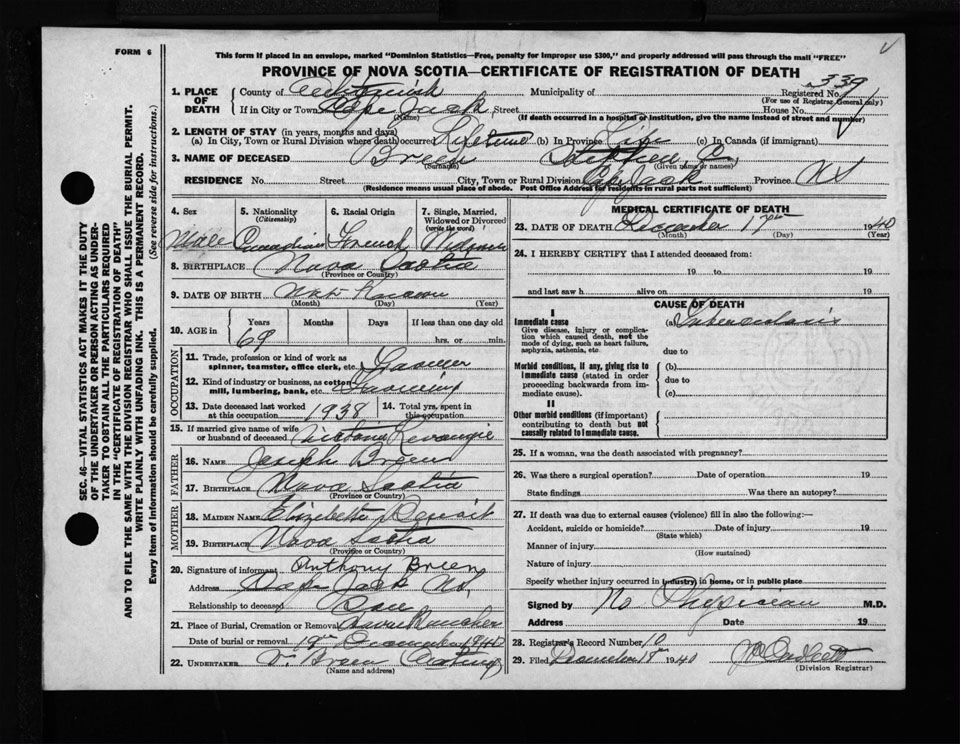 FORM 6
This form if placed in an envelope, marked "Dominion Statistics—Free, penalty for improper use $300," and properly addressed will pass through the mail "FREE"
PROVINCE OF NOVA SCOTIA—CERTIFICATE OF REGISTRATION OF DEATH
SEC. 46—VITAL STATISTICS ACT MAKES IT THE DUTY
OF THE UNDERTAKER OR PERSON ACTING AS UNDER-
TAKER TO OBTAIN ALL THE PARTICULARS REQUIRED
IN THE "CERTIFICATE OF REGISTRATION OF DEATH"
AND TO FILE THE SAME WITH THE DIVISION REGISTRAR WHO SHALL ISSUE THE BURIAL PERMIT.
WRITE PLAINLY WITH UNFADING INK. THIS IS A PERMANENT RECORD.
Every item of information should be carefully supplied. (See reverse side for instructions.)
1. PLACE OF DEATH
County of Antigonish Municipality of Registered No. 339
(For use of Registrar General only)
If in City or Town Cape Jack Street House No.
(Name) (If death occurred in a hospital or institution, give the name instead of street and number)
2. LENGTH OF STAY (in years, months and days)
(a) In City, Town or Rural Division where death occurred Lifetime (b) In Province Life (c) In Canada (if immigrant)
3. NAME OF DECEASED Breen Stephen C.
(Surname) (Given name or names)
RESIDENCE No. Street City, Town or Rural Division Cape Jack Province NS
(Residence means usual place of abode. Post Office Address for residents in rural parts not sufficient)
4. Sex Male
5. Nationality (Citizenship) Canadian
6. Racial Origin French
7. Single, Married, Widowed or Divorced (write the word) Widower
8. BIRTHPLACE Nova Scotia
(Province or Country)
9. DATE OF BIRTH Not Known
(Month) (Day) (Year)
10. AGE in Years Months Days If less than one day old
69 hrs. or min.
OCCUPATION
11. Trade, profession or kind of work as spinner, teamster, office clerk, etc. Farmer
12. Kind of industry or business, as cotton mill, lumbering, bank, etc. Farming
13. Date deceased last worked at this occupation 1938 14. Total yrs. spent in this occupation
15. If married give name of wife or husband of deceased Victoria Levangie
FATHER
16. NAME Joseph Breen
17. BIRTHPLACE Nova Scotia
(Province or Country)
MOTHER
18. MAIDEN NAME Elizabeth Benoit
19. BIRTHPLACE Nova Scotia
(Province or Country)
20. Signature of informant Anthony Breen
Address Cape Jack NS,
Relationship to deceased Son
21. Place of Burial, Cremation or Removal Havre Boucher
Date of burial or removal 19th December 1940
22. UNDERTAKER Breen Acting
(Name and address)
MEDICAL CERTIFICATE OF DEATH
23. DATE OF DEATH December 17th 1940
(Month) (Day) (Year)
24. I HEREBY CERTIFY that I attended deceased from:
19 to 19
and last saw h alive on 19
CAUSE OF DEATH
I
Immediate cause (a) Tuberculosis
Give disease, injury or complica-
tion which caused death, not the
mode of dying, such as heart failure,
asphyxia, asthenia, etc.
due to
Morbid conditions, if any, giving rise to (b)
immediate cause (stated in order due to
proceeding backwards from im-
mediate cause). (c)
II
Other morbid conditions (if important)
contributing to death but not
causally related to immediate cause.
25. If a woman, was the death associated with pregnancy?
26. Was there a surgical operation? Date of operation 19
State findings Was there an autopsy?
27. If death was due to external causes (violence) fill in also the following:—
Accident, suicide or homicide? Date of injury 19
(State which)
Manner of injury
(How sustained)
Nature of injury
Specify whether injury occurred in industry, in home, or in public place
Signed by No Physician M.D.
Address Date 19
28. Registrar's Record Number 10
29. Filed December 18th 1940
(Division Registrar)